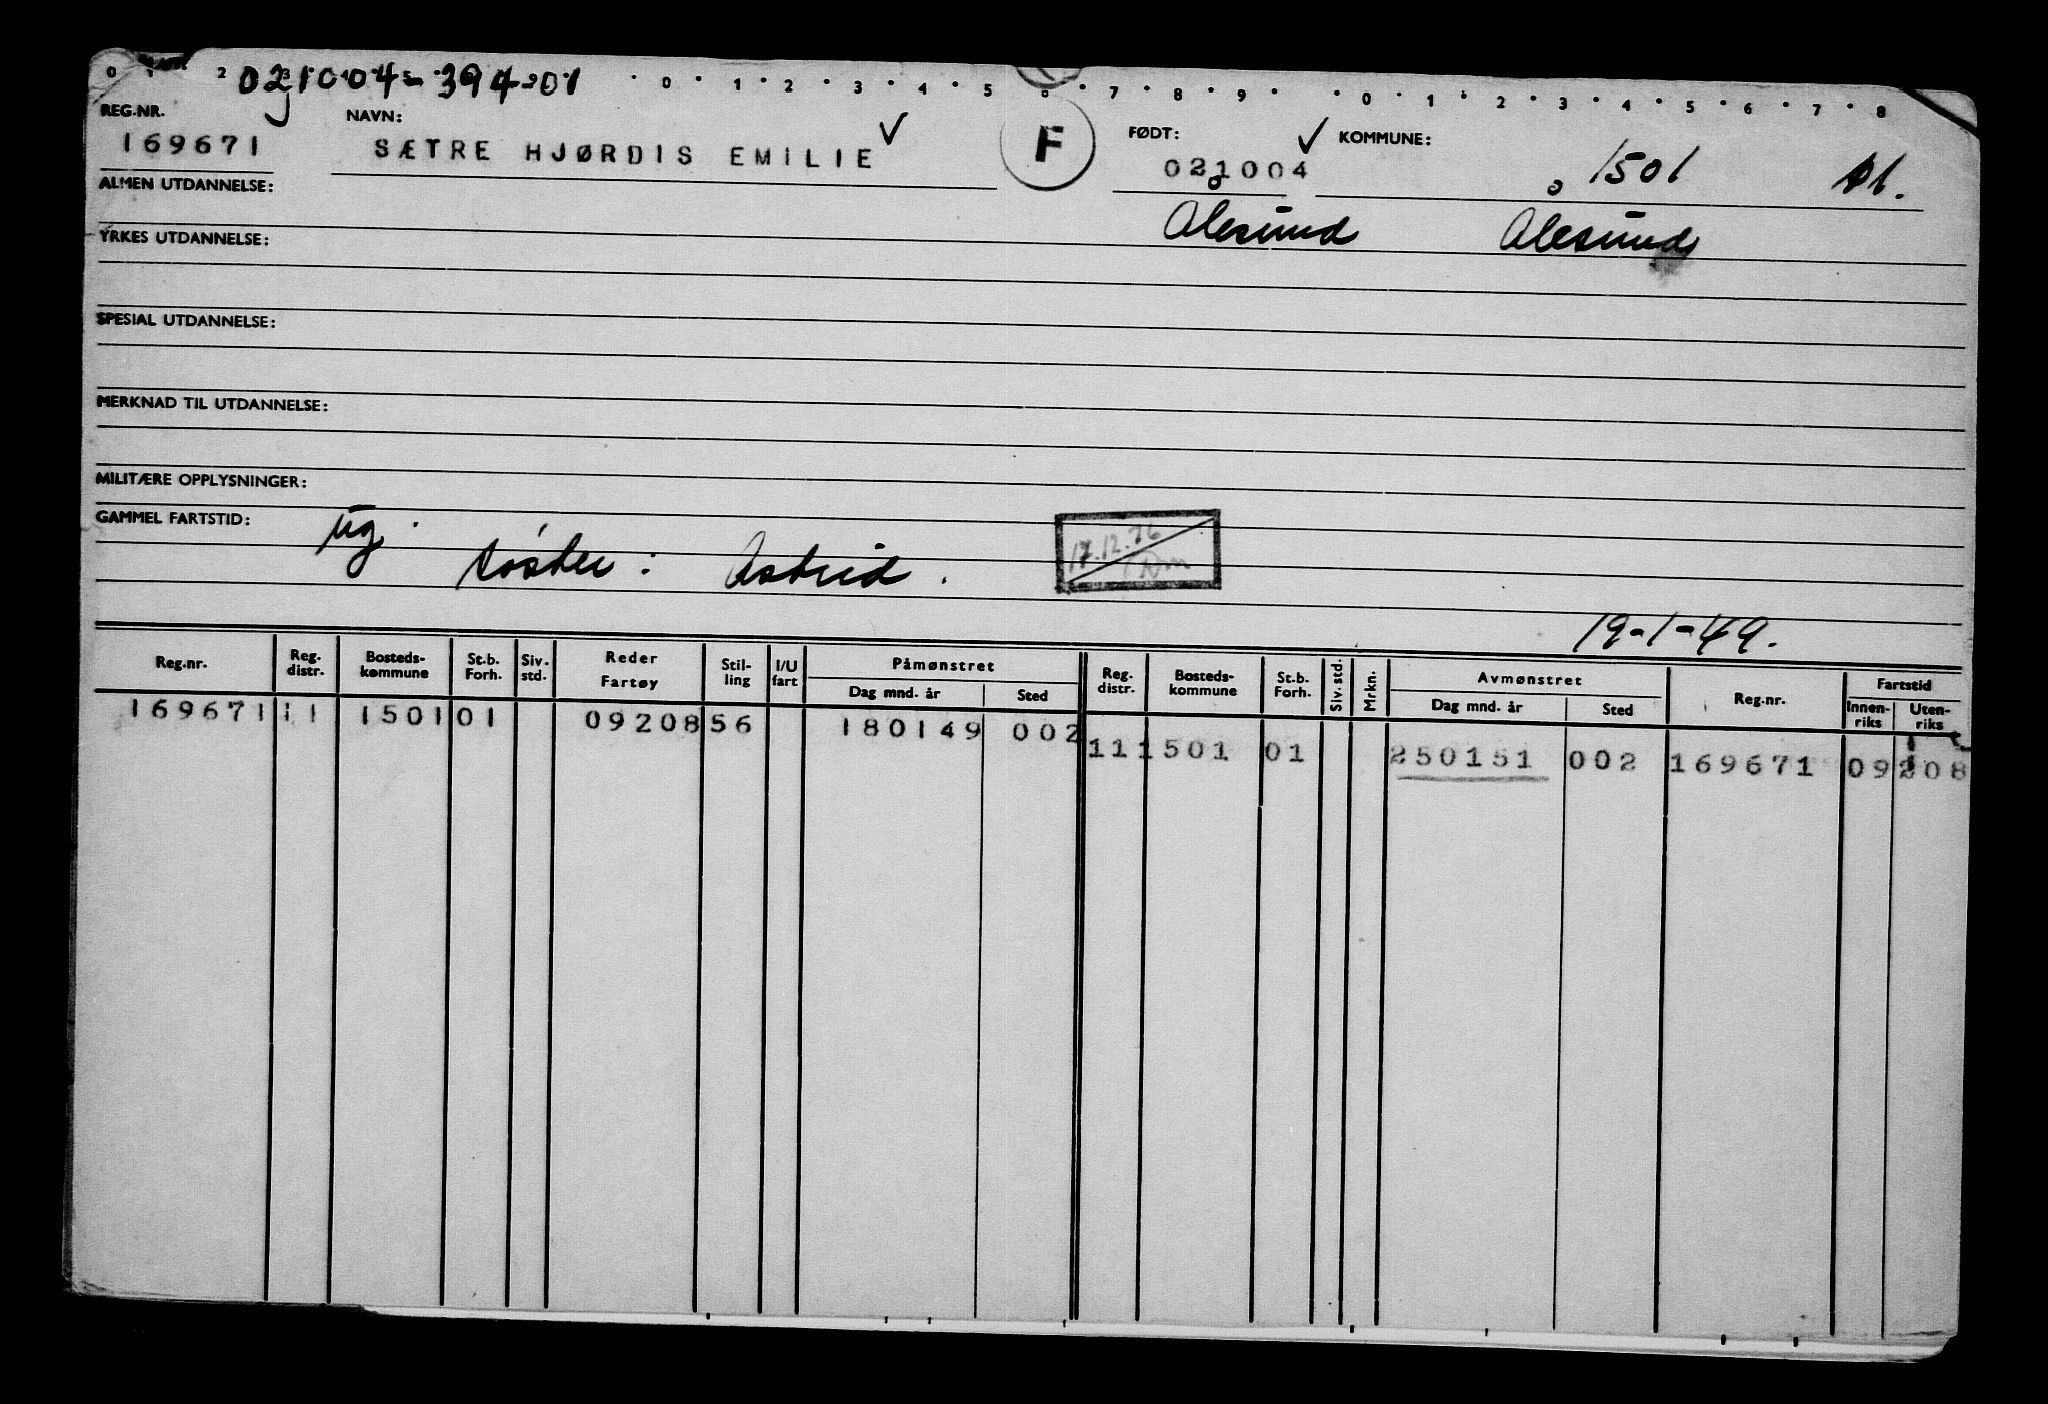 0 1 2 3 4 5 0 1 2 3 4 5 6 7 8 9 0 1 2 3 4 5 6 7 8
021004-394-01
REG.NR. NAVN: F FØDT: KOMMUNE:
169671 SÆTRE HJØRDIS EMILIE 021004 1501 Al.
ALMEN UTDANNELSE:
Alesund Alesund
YRKES UTDANNELSE:
SPESIAL UTDANNELSE:
MERKNAD TIL UTDANNELSE:
MILITÆRE OPPLYSNINGER:
GAMMEL FARTSTID: ug.
søster: Astrid. 17.12.76
19-1-49.
Reg.nr. Reg. distr. Bosteds-kommune St.b. Forh. Siv. std. Reder Fartøy Stil-ling I/U fart Påmønstret Dag mnd. år Sted Reg. distr. Bosteds-kommune St.b. Forh. Siv. std. Mrkn. Avmønstret Dag mnd. år Sted Reg.nr. Fartstid Innen-riks Uten-riks
169671 11 1501 01 09208 56 180149 002
11 1501 01 250151 002 169671 09208